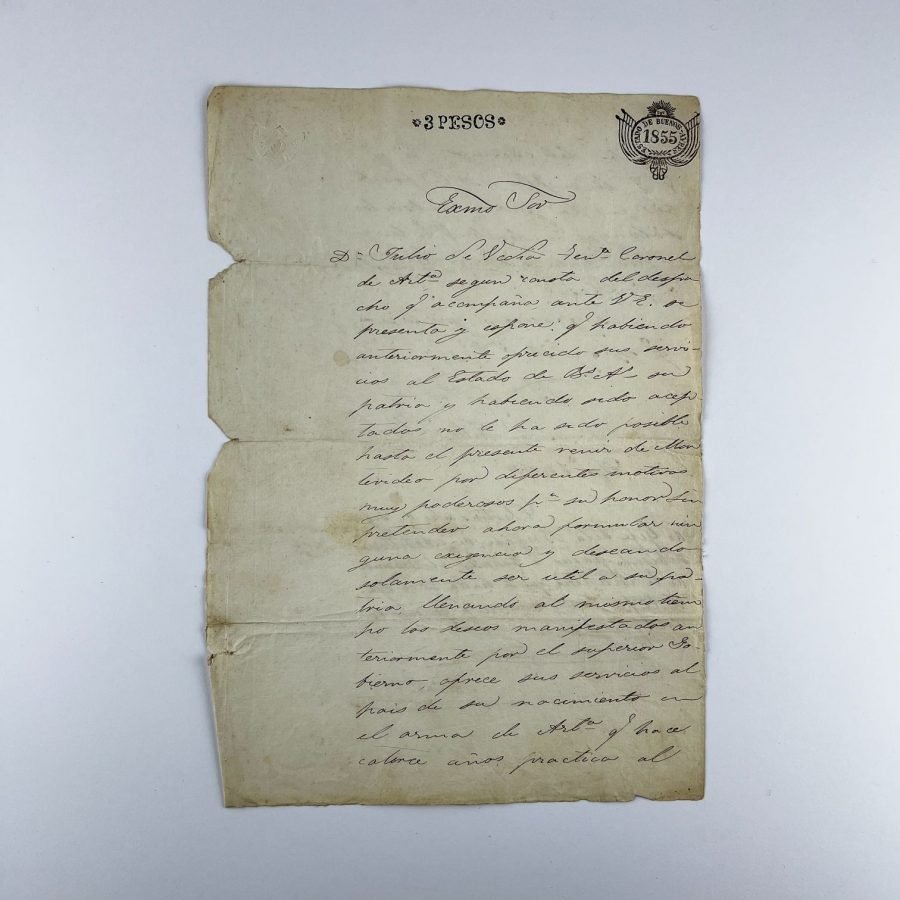 *3 PESOS*
ESTADO DE BUENOS-AYRES
1855
Exmo Sor
Dn Julio de Vedia Tente Coronel
de Arta segun consta del despa
cho q' acompaña ante V.E. se
presenta y espone: q' habiendo
anteriormente ofrecido sus servi-
cios al Estado de Bs As su
patria y habiendo sido acep-
tados no le ha sido posible
hasta el presente venir de Mon
tevideo por diferentes motivos
muy poderosos pa su honor. Sin
pretender ahora formular nin
guna exigencia y deseando
solamente ser util a su pa-
tria, llenando al mismo tiem
po los deseos manifestados an
teriormente por el superior Go-
bierno ofrece sus servicios al
pais de su nacimiento en
el arma de Arta q' hace
catorce años practica al